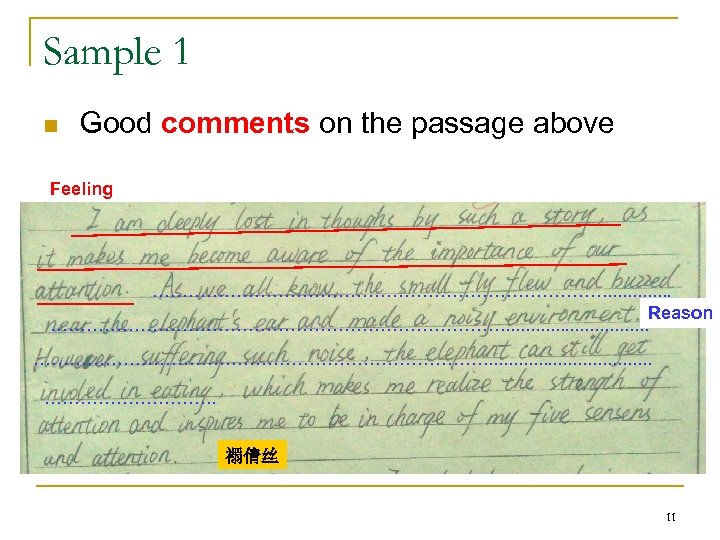 Sample 1
Good comments on the passage above
Feeling
I am deeply lost in thoughs by such a story, as
it makes me become aware of the importance of our
attantion. As we all know, the small fly flew and buzzed
near the elephant's ear and made a noisy environment.
Reason
However, suffering such noise, the elephant can still get
involed in eating, which makes me realize the strength of
attention and inspires me to be in charge of my five sensens
and attention.
褟倩丝
11